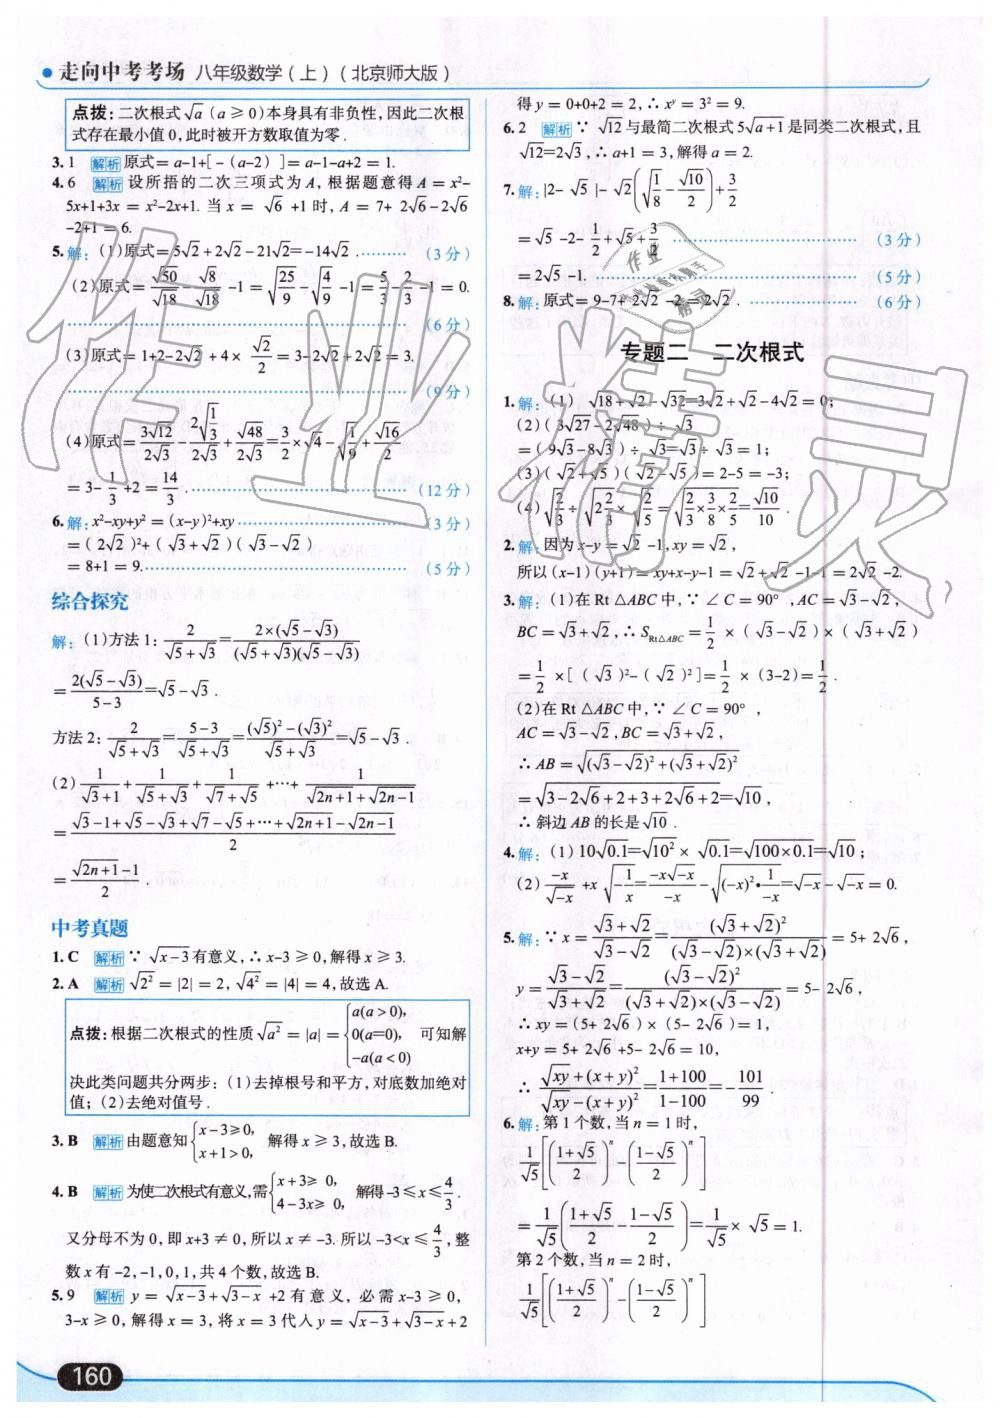 走向中考考场 八年级数学(上)(北京师大版)
点拨:二次根式√a (a≥0)本身具有非负性,因此二次根
式存在最小值0,此时被开方数取值为零.
3.1 解析 原式=a-1+[-(a-2)]=a-1-a+2=1.
4.6 解析 设所捂的二次三项式为A,根据题意得A=x²-
5x+1+3x=x²-2x+1.当x=√6+1时,A=7+2√6-2√6
-2+1=6.
5.解:(1)原式=5√2+2√2-21√2=-14√2.………(3分)
(2)原式=√50/√18-√8/√18-1=√(25/9)-√(4/9)-1=5/3-2/3-1=0.
………(6分)
(3)原式=1+2-2√2+4×√2/2=3-2√2+2√2=3.
………(9分)
(4)原式=3√12/2√3-2√(1/3)/2√3+√48/2√3=3/2×√4-√(1/9)+√16/2
=3-1/3+2=14/3.………(12分)
6.解:x²-xy+y²=(x-y)²+xy………(3分)
=(2√2)²+(√3+√2)(√3-√2)
=8+1=9.………(5分)
综合探究
解:(1)方法1:2/(√5+√3)=2×(√5-√3)/(√5+√3)(√5-√3)
=2(√5-√3)/(5-3)=√5-√3.
方法2:2/(√5+√3)=(5-3)/(√5+√3)=((√5)²-(√3)²)/(√5+√3)=√5-√3.
(2)1/(√3+1)+1/(√5+√3)+1/(√7+√5)+…+1/(√(2n+1)+√(2n-1))
=(√3-1+√5-√3+√7-√5+…+√(2n+1)-√(2n-1))/2
=(√(2n+1)-1)/2.
中考真题
1.C 解析 ∵√(x-3)有意义,∴x-3≥0,解得x≥3.
2.A 解析 √2²=|2|=2,√4²=|4|=4,故选A.
点拨:根据二次根式的性质√a²=|a|={a(a>0),0(a=0),-a(a<0) 可知解
决此类问题共分两步:(1)去掉根号和平方,对底数加绝对
值;(2)去绝对值号.
3.B 解析 由题意知{x-3≥0,x+1>0, 解得x≥3,故选B.
4.B 解析 为使二次根式有意义,需{x+3≥0,4-3x≥0, 解得-3≤x≤4/3.
又分母不为0,即x+3≠0,所以x≠-3.所以-3<x≤4/3,整
数x有-2,-1,0,1,共4个数,故选B.
5.9 解析 y=√(x-3)+√(3-x)+2有意义,必需x-3≥0,
3-x≥0,解得x=3,将x=3代入y=√(x-3)+√(3-x)+2
160
得y=0+0+2=2,∴xʸ=3²=9.
6.2 解析 ∵√12与最简二次根式5√(a+1)是同类二次根式,且
√12=2√3,∴a+1=3,解得a=2.
7.解:|2-√5|-√2(√(1/8)-√10/2)+3/2
=√5-2-1/2+√5+3/2………(3分)
=2√5-1.………(5分)
8.解:原式=9-7+2√2-2=2√2.………(6分)
专题二 二次根式
1.解:(1)√18+√2-√32=3√2+√2-4√2=0;
(2)(3√27-2√48)÷√3
=(9√3-8√3)÷√3=√3÷√3=1;
(3)(√2+√5)(√2-√5)=2-5=-3;
(4)√(2/3)÷√(2 2/3)×√(2/5)=√(2/3×3/8×2/5)=√10/10.
2.解:因为x-y=√2-1,xy=√2,
所以(x-1)(y+1)=xy+x-y-1=√2+√2-1-1=2√2-2.
3.解:(1)在Rt△ABC中,∵∠C=90°,AC=√3-√2,
BC=√3+√2,∴S Rt△ABC=1/2×(√3-√2)×(√3+√2)
=1/2×[(√3)²-(√2)²]=1/2×(3-2)=1/2.
(2)在Rt△ABC中,∵∠C=90°,
AC=√3-√2,BC=√3+√2,
∴AB=√((√3-√2)²+(√3+√2)²)
=√(3-2√6+2+3+2√6+2)=√10,
∴斜边AB的长是√10.
4.解:(1)10√0.1=√10²×√0.1=√(100×0.1)=√10;
(2)-x/√-x+x√(-1/x)=-x√-x/-x-√((-x)²·1/-x)=√-x-√-x=0.
5.解:∵x=(√3+√2)/(√3-√2)=(√3+√2)²/(√3-√2)×(√3+√2)=5+2√6,
y=(√3-√2)/(√3+√2)=(√3-√2)²/(√3+√2)×(√3-√2)=5-2√6,
∴xy=(5+2√6)×(5-2√6)=1,
x+y=5+2√6+5-2√6=10,
∴(√xy+(x+y)²)/(√xy-(x+y)²)=(1+100)/(1-100)=-101/99.
6.解:第1个数,当n=1时,
1/√5[((1+√5)/2)ⁿ-((1-√5)/2)ⁿ]
=1/√5((1+√5)/2-(1-√5)/2)=1/√5×√5=1.
第2个数,当n=2时,
1/√5[((1+√5)/2)ⁿ-((1-√5)/2)ⁿ]
作业精灵